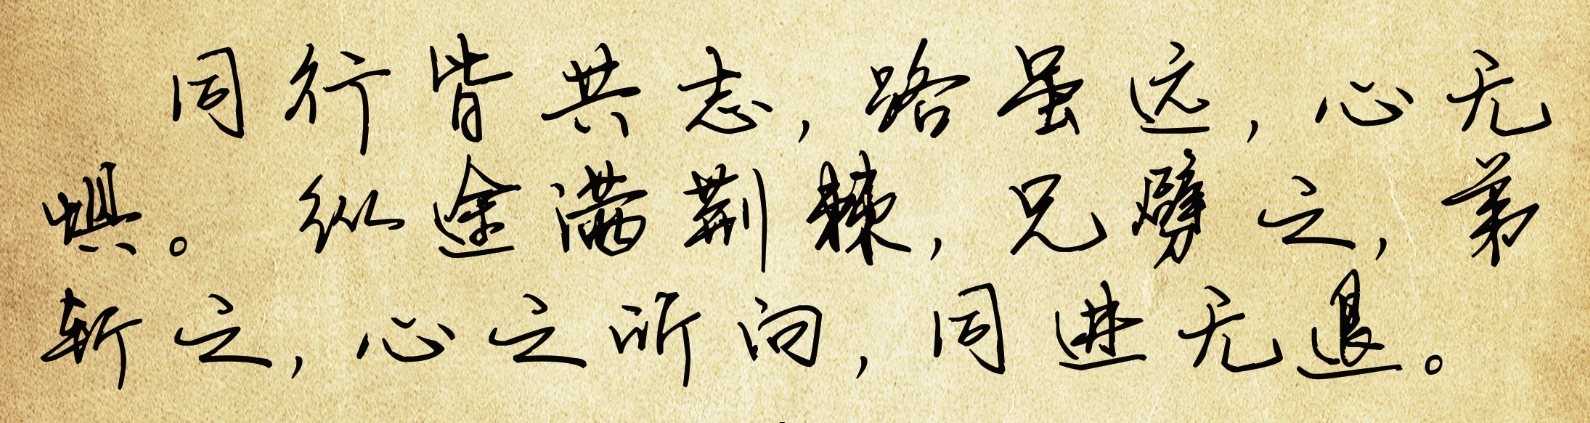 同行皆共志，路虽远，心无
惧。纵途满荆棘，兄劈之，弟
斩之，心之所向，同进无退。